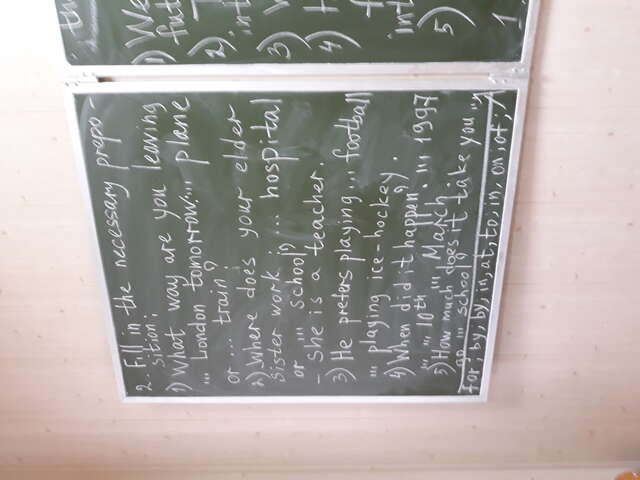 2. Fill in the necessary prepo-
sition:
1) What way are you leaving
... London tomorrow: ... plane
or ... train?
2) Where does your elder
sister work : ... hospital
or ... school?
- She is a teacher.
3) He prefers playing ... football
... playing ice-hockey.
4) When did it happen? ... 1997
... ... 10th ... March
5) How much does it take you ...
go ... school?
for; by, by, in, at, to, in, on, of; A
the
1) We
fut
2)
int
3)
4)
int
5)
1